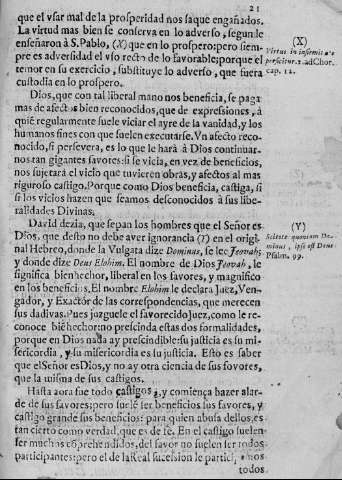 21
que el vsar mal de la prosperidad nos saque engañados.
La virtud mas bien se conserva en lo adverso, segun le
enseñaron à S. Pablo, (X) que en lo prospero; pero siem-
pre es adversidad el vso recto de lo favorable; porque el
temor en su exercicio, substituye lo adverso, que fuera
custodia en lo prospero.
(X)
Virtus in infirmit
perficitur. 2. ad Chor.
cap. 12.
Dios, que con tal liberal mano nos beneficia, se paga
mas de afectos bien reconocidos, que de expressiones, à
quiē regularmente suele viciar el ayre de la vanidad, y los
humanos fines con que suelen executarse. Vn afecto reco-
nocido, si persevera, es lo que le harà à Dios continuar-
nos tan gigantes favores: si se vicia, en vez de beneficios,
nos sujetarà el vicio que tuvieren obras, y afectos al mas
riguroso castigo. Porque como Dios beneficia, castiga, si
si los vicios hazen que seamos desconocidos à sus libe-
ralidades Divinas.
David dezia, que sepan los hombres que el Señor es
Dios, que desto no debe aver ignorancia (Y) en el origi-
nal Hebreo, donde la Vulgata dize Dominus, se lee Jeovah;
y donde dize Deus Elohim. El nombre de Dios Jeovah, le
significa bienhechor, liberal en los favores, y magnifico
en los beneficios. El nombre Elohim le declara Juez, Ven-
gador, y Exactor de las correspondencias, que merecen
sus dadivas. Pues juzguele el favorecido Juez, como le re-
conoce biēhechor: no prescinda estas dos formalidades,
porque en Dios nada ay prescindible: su justicia es su mi-
sericordia, y su misericordia es su justicia. Esto es saber
que el Señor es Dios, y no ay otra ciencia de sus fovores,
que la misma de sus castigos.
(Y)
Scitote quoniam Do-
minus, ipse est Deus
Psalm. 99.
Hasta aora fue todo castigos, y comiença hazer alar-
de de sus favores; pero suele ser beneficios sus favores, y
castigo grande sus beneficios: para quien abusa dellos, es
tan cierto como verdad, que es de Fè. En el castigo suelen
ser muchos cōprehendidos, del favor no suelen ser todos
participantes: pero el de la Real sucession le partici
todos